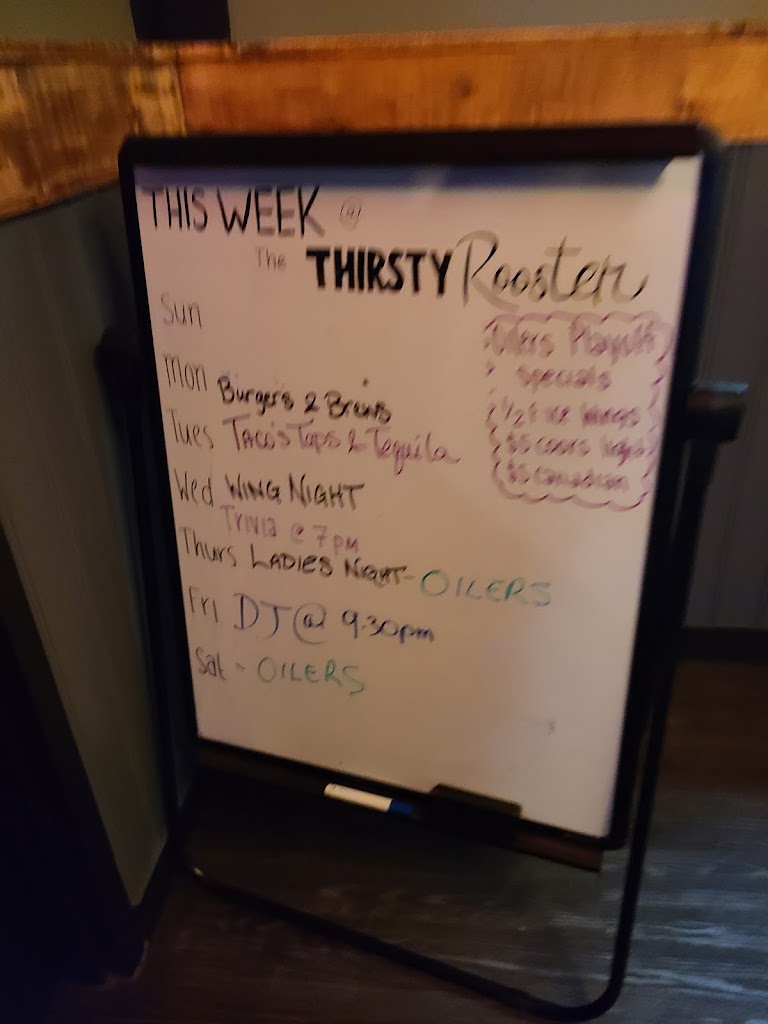 THIS WEEK @
The THIRSTY Rooster
Sun
Mon Burgers & Brews
Tues TACO'S Taps & Tequila
Wed WING NIGHT
Trivia @ 7pm
Thurs LADIES NIGHT - OILERS
Fri DJ @ 9:30pm
Sat - OILERS
Oilers Playoff
specials
1/2 Price Wings
$5 coors light
$5 canadian